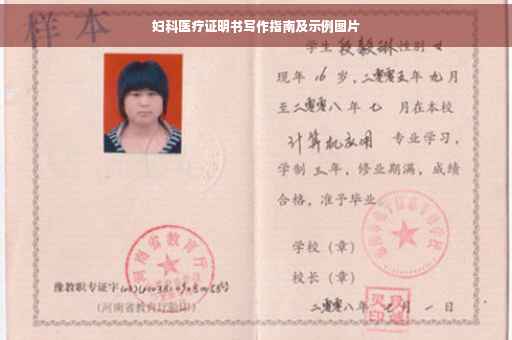 妇科医疗证明书写作指南及示例图片
样本
学生段毅琳性别女
现年16岁，二零零五年九月
至二零零八年七月在本校
计算机应用 专业学习，
学制三年，修业期满，成绩
合格，准予毕业
学校（章）
校长（章）
二零零八年七月一日
河南省教育厅
豫教职专证字
（河南省教育厅验印）